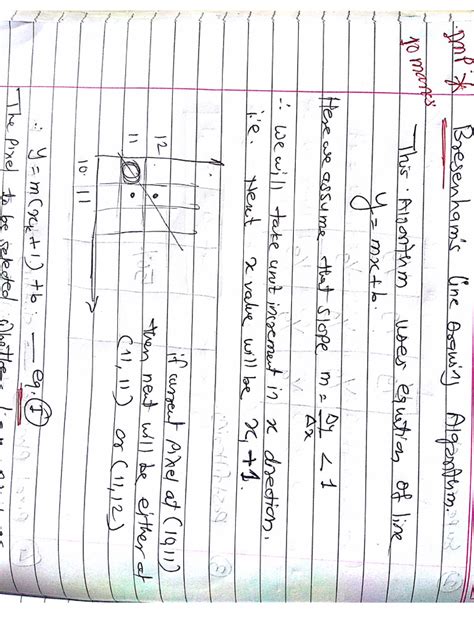 IMP *
10 marks
Bresenham's line drawing Algorithm.
This Algorithm uses eqution of line
y = mx + b.
Here we assume that slope m = Δy/Δx < 1
∴ we will take unit increment in x direction.
i.e. next x value will be xₖ + 1.
12
11
10 11
if current pixel at (10,11)
then next will be either at
(11, 11) or (11,12)
∴ y = m(xₖ + 1) + b. — eq. (I)
The pixel to be selected